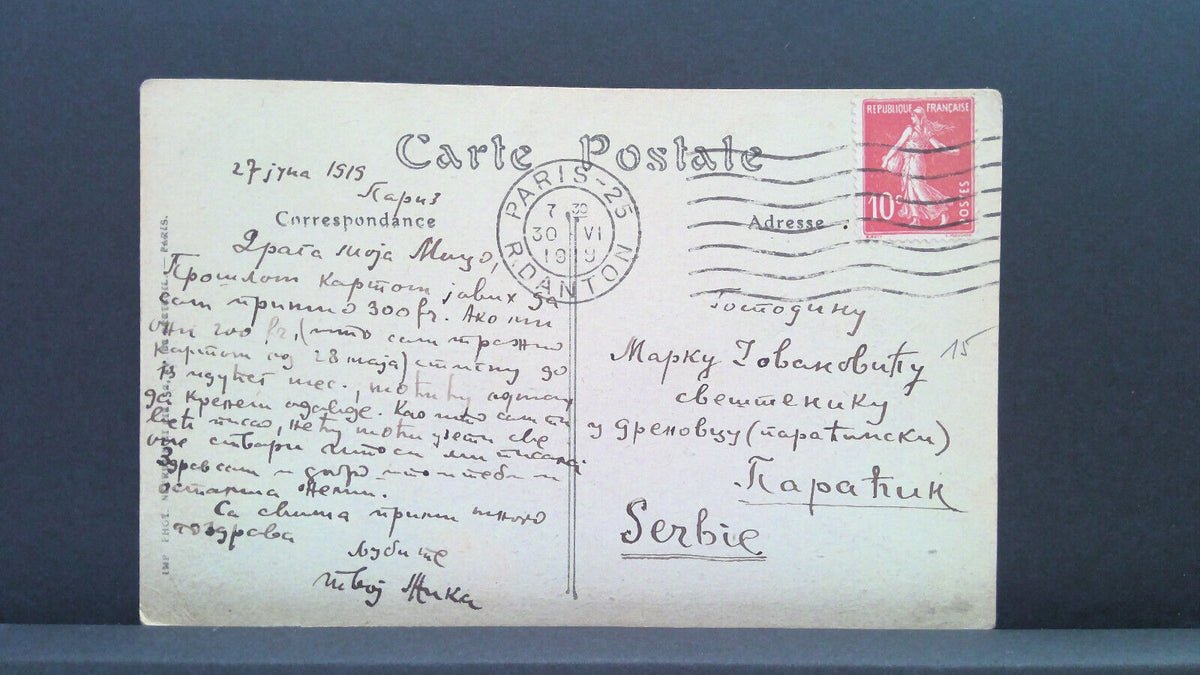 Carte Postale
REPUBLIQUE FRANÇAISE
10c
POSTES
PARIS-25
7 30
30 VI
1919
R. DANTON
Correspondance
Adresse
27 јуна 1919
Париз
Драга моја Мицо,
Прошлом картом јавих да
сам примио 300 fr. Ако ми
они 200 fr. (што сам тражио
картом од 28 маја) стигну до
идућег мес., моћи ћу одмах
да кренем одавде. Као што сам ти
већ писао, нећу моћи узети све
оне ствари што си ми писала.
Здрав сам и добро што и теби и
осталима желим.
Са свима прими много
поздрава
љуби те
твој Жика
Господину
Марку Јовановићу
15
свештенику
у Дреновцу (параћински)
Параћин
Serbie
IMP
PARIS.